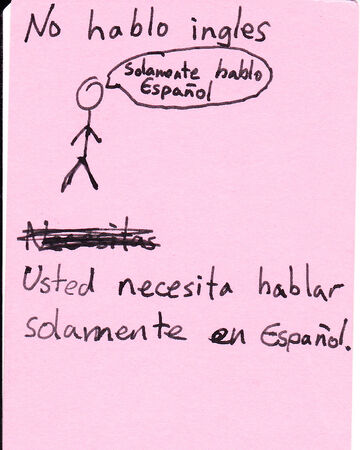 No hablo ingles
Solamente hablo
Español
Necesitas
Usted necesita hablar
solamente en Español.